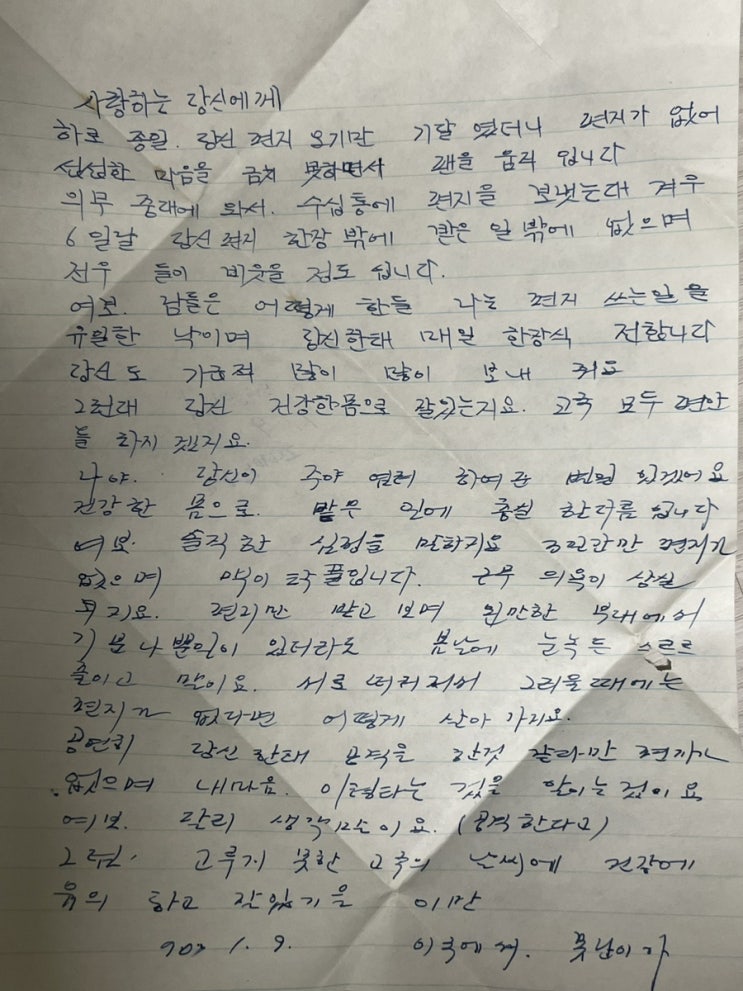 사랑하는 당신에게
하로 종일. 당신 편지 오기만 기달 렸더니 편지가 없어
섭섭한 마음을 금치 못하면서 팬을 움직 입니다
의무 중대에 와서. 수십통에 편지을 보냇는대 겨우
6일날 당신 편지 한장 밖에 받은 일 밖에 없으며
전우 들이 비웃을 정도 입니다.
여보. 남들은 어떻게 한들 나는 편지 쓰는일 을
유일한 낙이며 당신한태 매일 한장식 전합니다
당신도 가급적 많이 많이 보내 줘요
그런대 당신 건강한몸으로 잘있는지요. 고국 모두 편안
들 하지 겠지요.
나야. 당신이 주야 염려 하여준 있겠어요
건강한 몸으로. 맡무 일에 충실 한다름 입니다
여보. 솔직한 심정을 말하지요 3일간만 편지가
없으며 맥이 탁 풀입니다. 근무 의욕이 상실
되지요. 편지만 받고 보며 원만한 부대에서
기분나쁜일이 있더라도 봄날에 눈녹듯 스르르
풀이고 말이요. 서로 떠러져서 그리울때에는
편지가 없다면 어떻게 살아 가지요.
공연히 당신한태 공격을 한것 같라만 편지가
없으며 내마음. 이렇타는 것을 알이는것이요
여보. 달리 생각마소이요. (공격한다고)
그럼. 고루지 못한 고국의 날씨에 건강에
유의 하고 잘있기을 이만
70. 1. 9. 이국에서. 못난이가